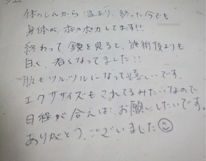 体のしんから温まり、終った今でも
身体が ポカポカしてます!!
終わって 鏡を見ると、施術前よりも
白く、なってました!!
肌もツルツルになって嬉しいです。
エクササイズもされてるみたいなので
日程が合えば お願いしたいです。
ありがとう、ございました